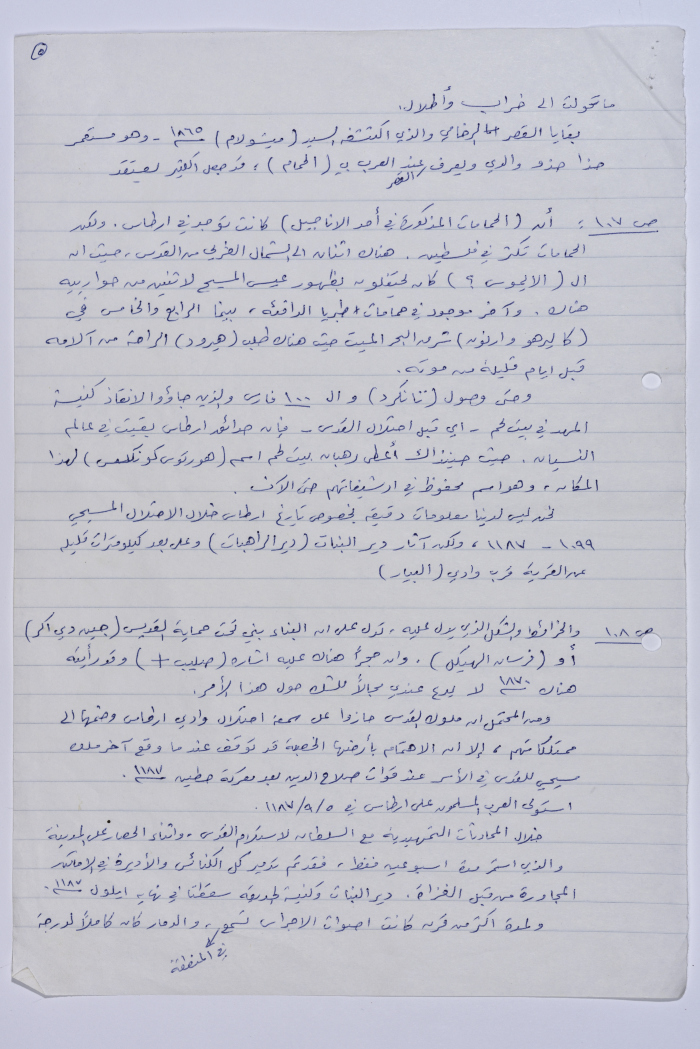 ٥
ما تحولت الى خراب وأطلال.
بقايا القصر الرخامي والذي اكتشفه السيد (ميشولام) ١٨٦٥ - وهو مستعمر
هذا حذو والدي ويعرف عند العرب بـ (الحمام)، قد جعل الكثير يعتقد
القصر
ص ١٠٧: أن (الحمامات المذكورة في أحد الاناجيل) كانت توجد في ارطاس. ولكن
الحمامات تكثر في فلسطين. هناك اثنان الى الشمال الغربي من القدس، حيث ان
ال (الايموس ؟) كان يحتفلون بظهور عيسى المسيح لاثنين من حوارييه
هناك. وآخر موجود في حمامات طبريا الدافئة، بينما الرابع والخامس في
(كاليرهو وارنون) شرق البحر الميت حيث هناك طلب (هيرود) الراحة من آلامه
قبل ايام قليلة من موته.
وحتى وصول (تانكرد) و ال ١٠٠ فارس والذين جاؤوا لانقاذ كنيسة
المهد في بيت لحم - اي قبل احتلال القدس - فإن حدائق ارطاس بقيت في عالم
النسيان. حيث حينذاك أعطى رهبان بيت لحم اسم (هورتوس كونكلسس) لهذا
المكان، وهو اسم محفوظ في ارشيفاتهم حتى الآن.
نحن ليس لدينا معلومات دقيقة بخصوص تاريخ ارطاس خلال الاحتلال المسيحي
١٠٩٩ - ١١٨٧، ولكن آثار دير البنات (دير الراهبات) وعلى بعد كيلومترات قليلة
عن القرية قرب وادي (البيار)
ص ١٠٨ والخرائط والشكل الذي يدل عليه، تدل على ان البناء بني تحت حماية القديس (جين دي اكر)
أو (فرسان الهيكل)، وان حجراً هناك عليه اشارة (صليب +) وقد رأيته
هناك ١٨٧٠ لا يدع عندي مجالاً للشك حول هذا الأمر.
ومن المحتمل ان ملوك القدس حازوا على سمعة احتلال وادي ارطاس وضمها الى
ممتلكاتهم، إلا ان الاهتمام بأرضها الخصبة قد توقف عندما وقع آخر ملك
مسيحي للقدس في الأسر عند قوات صلاح الدين بعد معركة حطين ١١٨٧.
استولى العرب المسلمون على ارطاس في ١١٨٧/٩/٥.
خلال المحادثات التمهيدية مع السلطان لاستلام القدس، واثناء الحصار على المدينة
والذي استمر مدة اسبوعين فقط، فقد تم تدمير كل الكنائس والأديرة في الاماكن
المجاورة من قبل الغزاة. دير البنات وكنيسة سقطتا في نهاية ايلول ١١٨٧.
ولمدة اكثر من قرن كانت اصوات الاجراس تسمع، والدمار كان كاملاً لدرجة
في المنطقة